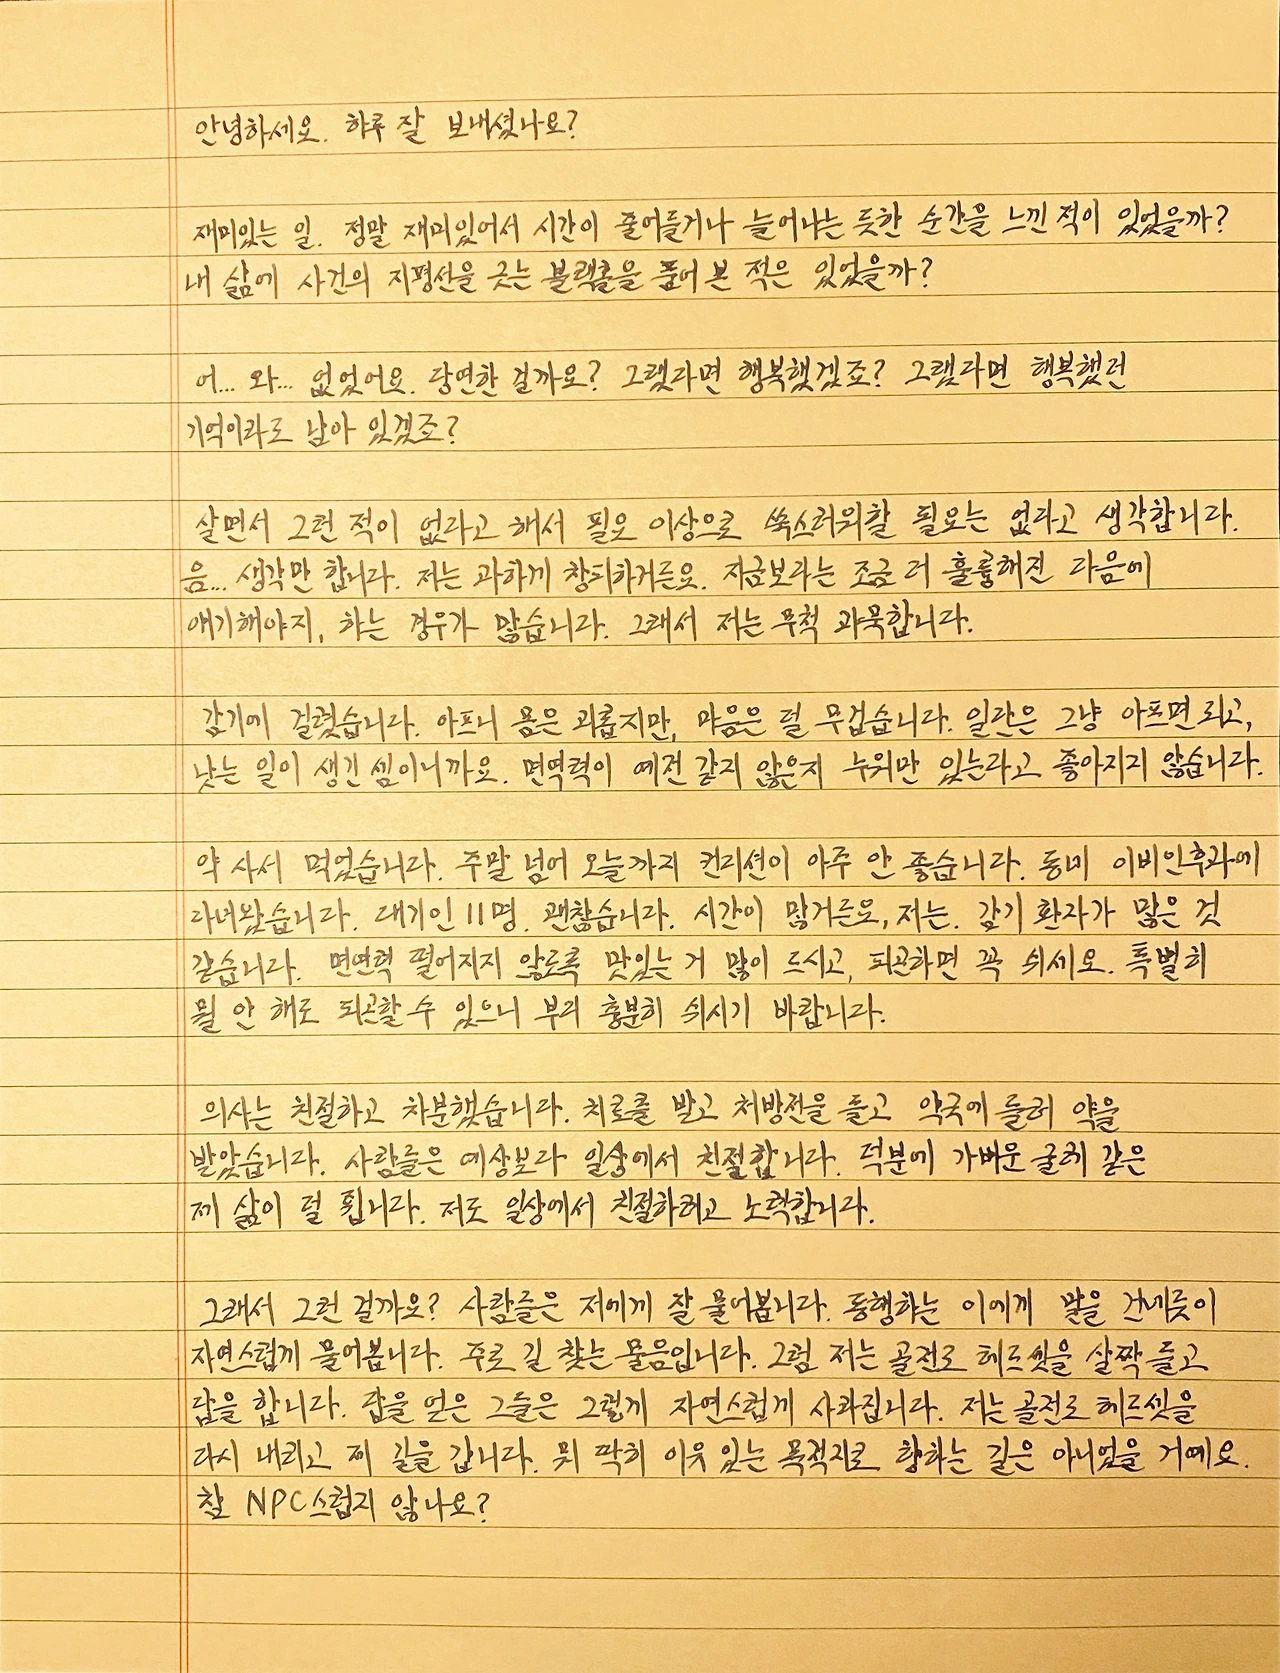 안녕하세요. 하루 잘 보내셨나요?
재미있는 일. 정말 재미있어서 시간이 줄어들거나 늘어나는 듯한 순간을 느낀 적이 있었을까?
내 삶에 사건의 지평선을 긋는 블랙홀을 품어 본 적은 있었을까?
어... 와... 없었어요. 당연한 걸까요? 그랬다면 행복했겠죠? 그랬다면 행복했던
기억이라도 남아 있겠죠?
살면서 그런 적이 없다고 해서 필요 이상으로 쑥스러워할 필요는 없다고 생각합니다.
음... 생각만 합니다. 저는 과하게 창피하거든요. 지금보다는 조금 더 훌륭해진 다음에
얘기해야지, 하는 경우가 많습니다. 그래서 저는 무척 과묵합니다.
감기에 걸렸습니다. 아프니 몸은 괴롭지만, 마음은 덜 무겁습니다. 일단은 그냥 아프면 되고,
낫는 일이 생긴 셈이니까요. 면역력이 예전 같지 않은지 누워만 있는다고 좋아지지 않습니다.
약 사서 먹었습니다. 주말 넘어 오늘까지 컨디션이 아주 안 좋습니다. 동네 이비인후과에
다녀왔습니다. 대기인 11명. 괜찮습니다. 시간이 많거든요, 저는. 감기 환자가 많은 것
같습니다. 면연력 떨어지지 않도록 맛있는 거 많이 드시고, 피곤하면 꼭 쉬세요. 특별히
뭘 안 해도 피곤할 수 있으니 부디 충분히 쉬시기 바랍니다.
의사는 친절하고 차분했습니다. 치료를 받고 처방전을 들고 약국에 들러 약을
받았습니다. 사람들은 예상보다 일상에서 친절합니다. 덕분에 가벼운 굴레 같은
제 삶이 덜 횝니다. 저도 일상에서 친절하려고 노력합니다.
그래서 그런 걸까요? 사람들은 저에게 잘 물어봅니다. 동행하는 이에게 말을 건네듯이
자연스럽게 물어봅니다. 주로 길 찾는 물음입니다. 그럼 저는 골전도 헤드셋을 살짝 들고
답을 합니다. 답을 얻은 그들은 그렇게 자연스럽게 사라집니다. 저는 골전도 헤드셋을
다시 내리고 제 길을 갑니다. 뭐 딱히 이유 있는 목적지로 향하는 길은 아니었을 거예요.
참 NPC스럽지 않나요?